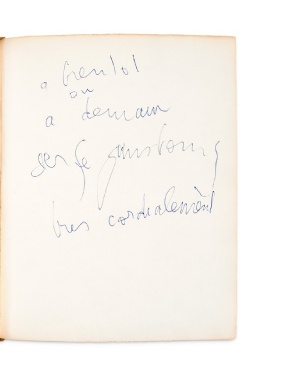 a bientot
ou
a demain
serge gainsbourg
tres cordialement